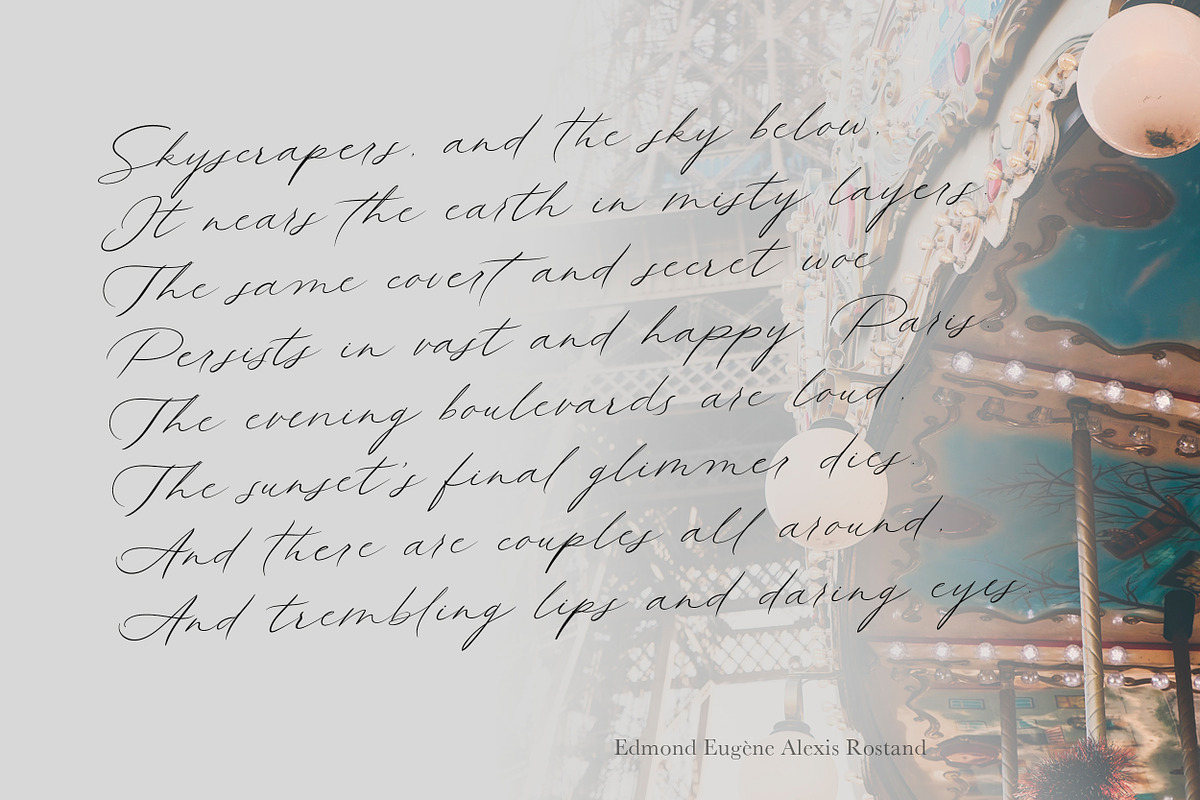 Skyscrapers, and the sky below,
It nears the earth in misty layers.
The same covert and secret woe
Persists in vast and happy Paris.
The evening boulevards are loud,
The sunset's final glimmer dies.
And there are couples all around,
And trembling lips and daring eyes.
Edmond Eugène Alexis Rostand